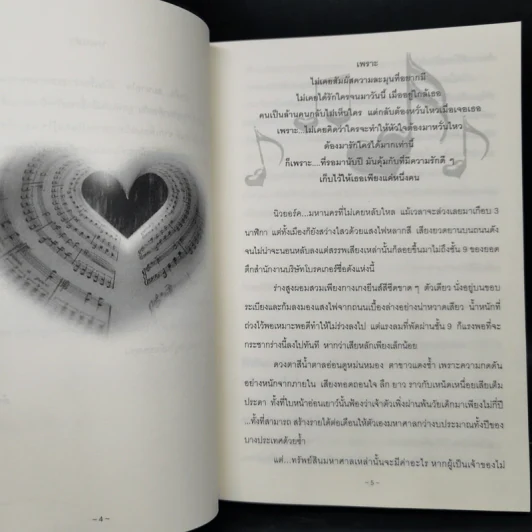 - 4 -
เพราะ
ไม่เคยสัมผัสความละมุนที่อยากมี
ไม่เคยได้รักใครจนมาวันนี้ เมื่ออยู่ใกล้เธอ
คนเป็นล้านคนกลับไม่เห็นใคร แต่กลับต้องหวั่นไหวเมื่อเจอเธอ
เพราะ...ไม่เคยคิดว่าใครจะทำให้หัวใจต้องมาหวั่นไหว
ต้องมารักใครได้มากเท่านี้
ก็เพราะ...ที่รอมานับปี มันคุ้มกับที่มีความรักดี ๆ
เก็บไว้ให้เธอเพียงแค่หนึ่งคน
นิวยอร์ค...มหานครที่ไม่เคยหลับไหล แม้เวลาจะล่วงเลยมาเกือบ 3
นาฬิกา แต่ทั้งเมืองก็ยังสว่างไสวด้วยแสงไฟหลากสี เสียงยวดยานบนถนนดัง
จนไม่น่าจะนอนหลับลงแต่สรรพเสียงเหล่านั้นก็ลอยขึ้นมาไม่ถึงชั้น 9 ของยอด
ตึกสำนักงานบริษัทโบรคเกอร์ชื่อดังแห่งนี้
ร่างสูงผอมสวมเพียงกางเกงยีนส์สีซีดขาด ๆ ตัวเดียว นั่งอยู่บนขอบ
ระเบียงและก้มลงมองแสงไฟจากถนนเบื้องล่างอย่างน่าหวาดเสียว น้ำหนักที่
ถ่วงไว้พอเหมาะพอดีทำให้ไม่ร่วงลงไป แต่แรงลมที่พัดผ่านชั้น 9 ก็แรงพอที่จะ
กระชากร่างนี้ลงไปทันที หากว่าเสียหลักเพียงเล็กน้อย
ดวงตาสีน้ำตาลอ่อนดูหม่นหมอง ตาขาวแดงช้ำ เพราะความกดดัน
อย่างหนักจากภายใน เสียงทอดถอนใจ ลึก ยาว ราวกับเหนื่อยเสียเต็ม
ประดา ทั้งที่ใบหน้าอ่อนเยาว์นั้นฟ้องว่าเจ้าตัวเพิ่งผ่านพ้นวัยเด็กมาเพียงไม่กี่ปี
...ทั้งที่สามารถ สร้างรายได้ต่อเดือนให้ตัวเองมหาศาลกว่างบประมาณทั้งปีของ
บางประเทศด้วยซ้ำ
แต่...ทรัพย์สินมหาศาลเหล่านั้นจะมีค่าอะไร หากผู้เป็นเจ้าของไม่
- 5 -